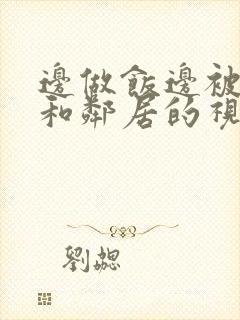 邊做飯邊被
和鄰居的視
劉勰